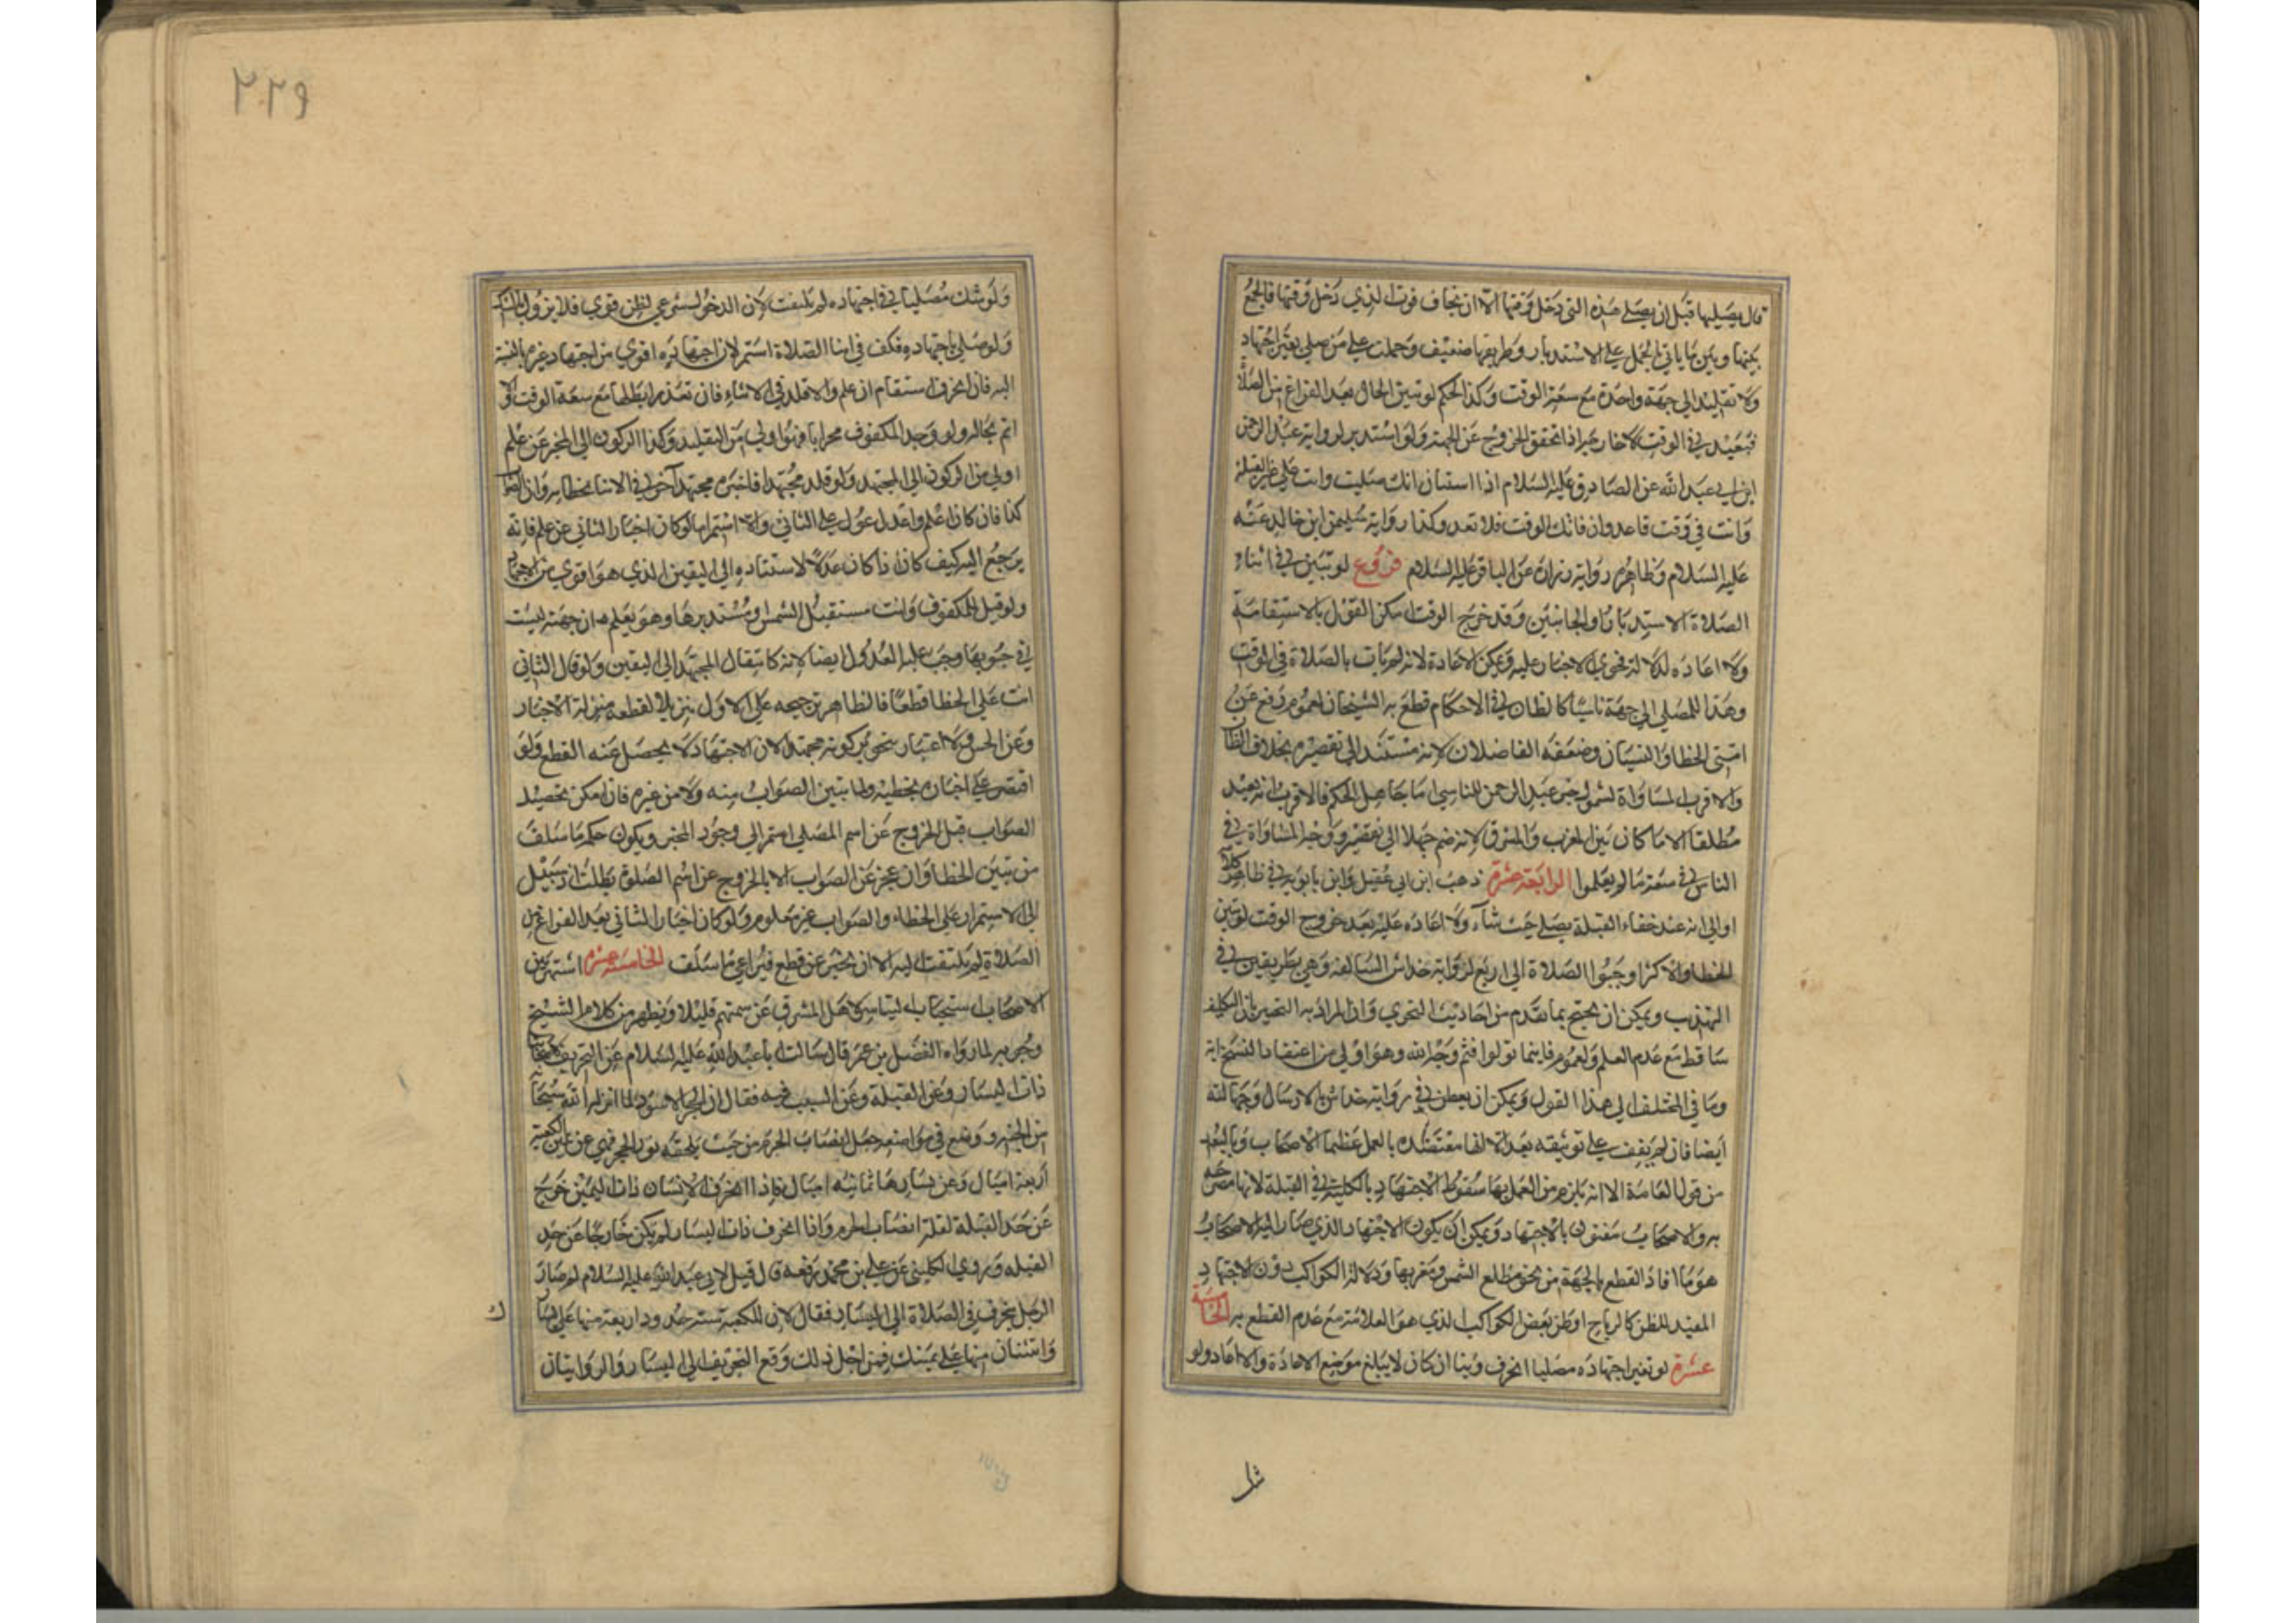 قال يصليها قبل ان يصلي هذه التي دخل وقتها الا ان يخاف فوت الذي دخل وقتها فالجمع
بينها وبين ما ياتي الحمل على الاستدبار وطريقها ضعيف وحملت على من صلى بغير اجتهاد
ولا تقليد الى جهة واحدة مع سعة الوقت وكذا الحكم لو تبين الحال بعد الفراغ من الصلاة
فيعيد في الوقت لا خارجه اذا تحقق الخروج عن الجهة ولو استدبر لرواية عبد الرحمن
ابن ابي عبد الله عن الصادق عليه السلام اذا استبان انك صليت وانت على غير القبلة
وانت في وقت فاعد وان فاتك الوقت فلا تعد وكذا رواية سليمن ابن خالد عنه
عليه السلام وظاهر رواية زرارة عن الباقر عليه السلام فروع لو تبين في اثناء
الصلاة الاستدبار او الجانبين وقد خرج الوقت امكن القول بالاستقامة
ولا اعاده لدلالة فحوى الاخبار عليه ويمكن الاعادة لانه لم يات بالصلاة في الوقت
وهذا المصلي الى جهة ناسيا كالظان في الاحكام قطع به الشيخان لعموم رفع عن
امتي الخطا والنسيان وضعفه الفاضلان لانه مستند الى تقصيره بخلاف الظان
والاقرب المساواة لشمول خبر عبد الرحمن للناسي اما جاهل الحكم فالاقرب انه يعيد
مطلقا الا ما كان بين المغرب والمشرق لانه ضم جهلا الى تقصير ووجه المساواة في
الناس في سعة ما لم يعلموا الرابعة عشرة ذهب ابن ابي عقيل وابن بابويه في ظاهر كلامه
اولى انه عند خفاء القبلة يصلي حيث شاء ولا اعاده عليه بعد خروج الوقت لو تبين
الخطا والاكثر اوجبوا الصلاة الى اربع لرواية خداش السالفه وهي بطريقين في
التهذيب ويمكن ان يحتج بما تقدم من احاديث التحري وان المراد به التخيير بان التكليف
ساقط مع عدم العلم ولعموم فاينما تولوا فثم وجه الله وهو اولى من اعتقاد النسخ اية
وما في المختلف الى هذا القول ويمكن ان يطعن في رواية خداش بالارسال وجهالته
ايضا فان لم يقف على توثيقه بعد الا انها معتضده بالعمل عظما الاصحاب وبالبعد
من قول العامة الا انه يلزم من العمل بها سقوط الاجتهاد بالكلية في القبلة لانها مصرحه
به والاصحاب مفتون بالاجتهاد ويمكن ان يكون الاجتهاد الذي صار اليه الاصحاب
هو ما افاد القطع بالجهة من نحو مطلع الشمس ومغربها ودلالة الكواكب دون الاجتهاد
المفيد للظن كالرياح او ظن بعض الكواكب الذي هو العلامة مع عدم القطع به الخامسة
عشرة لو تغير اجتهاده مصليا انحرف وبنا ان كان لا يبلغ موضع الاعادة والا اعاد ولو
ثك
٢٢٩
ولو شك مصليا في اجتهاده لم يلتفت لان الدخول شرعي لظن قوي فلا يزول بالشك
ولو صلى باجتهاده فكف في اثنا الصلاة استمر لان اجتهاده اقوى من اجتهاد غيره بالنسبة
اليه فان انحرف استقام ان علم والا قلد في الاثناء فان تعذر ابطلها مع سعة الوقت والا
اتم بحاله ولو وجد المكفوف محرابا فهو اولى من التقليد وكذا الركون الى المخبر عن علم
اولى من الركون الى المجتهد ولو قلد مجتهدا فاخبره مجتهد آخر في الاثنا بخطايه وان الصواب
كذا فان كان اعلم واعدل عول على الثاني والا استمر اما لو كان اخبار الثاني عن علم فانه
يرجع اليه كيف كان اذا كان عدلا لاستناده الى اليقين الذي هو اقوى من الاجتهاد
ولو قيل للمكفوف وانت مستقبل الشمس او مستدبرها وهو يعلم ان جهته ليست
في صوبها وجب عليه العدول ايضا لانه كانتقال المجتهد الى اليقين ولو قال الثاني
انت على الخطا قطعا فالظاهر ترجيحه على الاول تنزيلا لقطعه منزلة الاخبار
وعن الحس ولا اعتبار بتجويز كونه مجتهدا لان الاجتهاد لا يحصل عنه القطع ولو
اقتصر على اخباره بخطيئه ولما يتبين الصواب منه ولا من غيره فان امكن تحصيل
الصواب قبل الخروج عن اسم المصلي استمر الى وجود المخبر ويكون حكم ما سلف
من تبين الخطا وان عجز عن الصواب الا بالخروج عن اسم الصلوة بطلت اذ لا سبيل
الى الاستمرار على الخطاء والصواب غير معلوم ولو كان اخبار الثاني بعد الفراغ من
الصلاة لم يلتفت اليه الا ان يخبر عن قطع فيراعي ما سلف الخامسة عشرة اشتهر بين
الاصحاب استحباب التياسر لاهل المشرق عن سمتهم قليلا ويظهر من كلام الشيخ
وجوبه لما رواه الفضل بن عمر قال سالت ابا عبد الله عليه السلام عن التحريف لاصحابنا
ذات اليسار وعن القبلة وعن السبب فيه فقال ان الحجر الاسود لما انزل الله سبحانه
من الجنه ووضع في موضعه جعل انصاب الحرم من حيث يلحقه نور الحجر فهي عن يمين الكعبة
أربعة اميال وعن يسارها ثمانيه اميال فاذا انحرف الانسان ذات اليمين خرج
عن حد القبلة لقلة انصاب الحرم واذا انحرف ذات اليسار لم يكن خارجا عن حد
القبله وروى الكليني عن علي بن محمد رفعه قال قيل لابي عبد الله عليه السلام لم صار
الرجل ينحرف في الصلاة الى اليسار فقال لان للكعبة ستة حدود اربعة منها على يسارك
واثنتان منها على يمينك فمن اجل ذلك وقع التحريف الى اليسار والروايتان